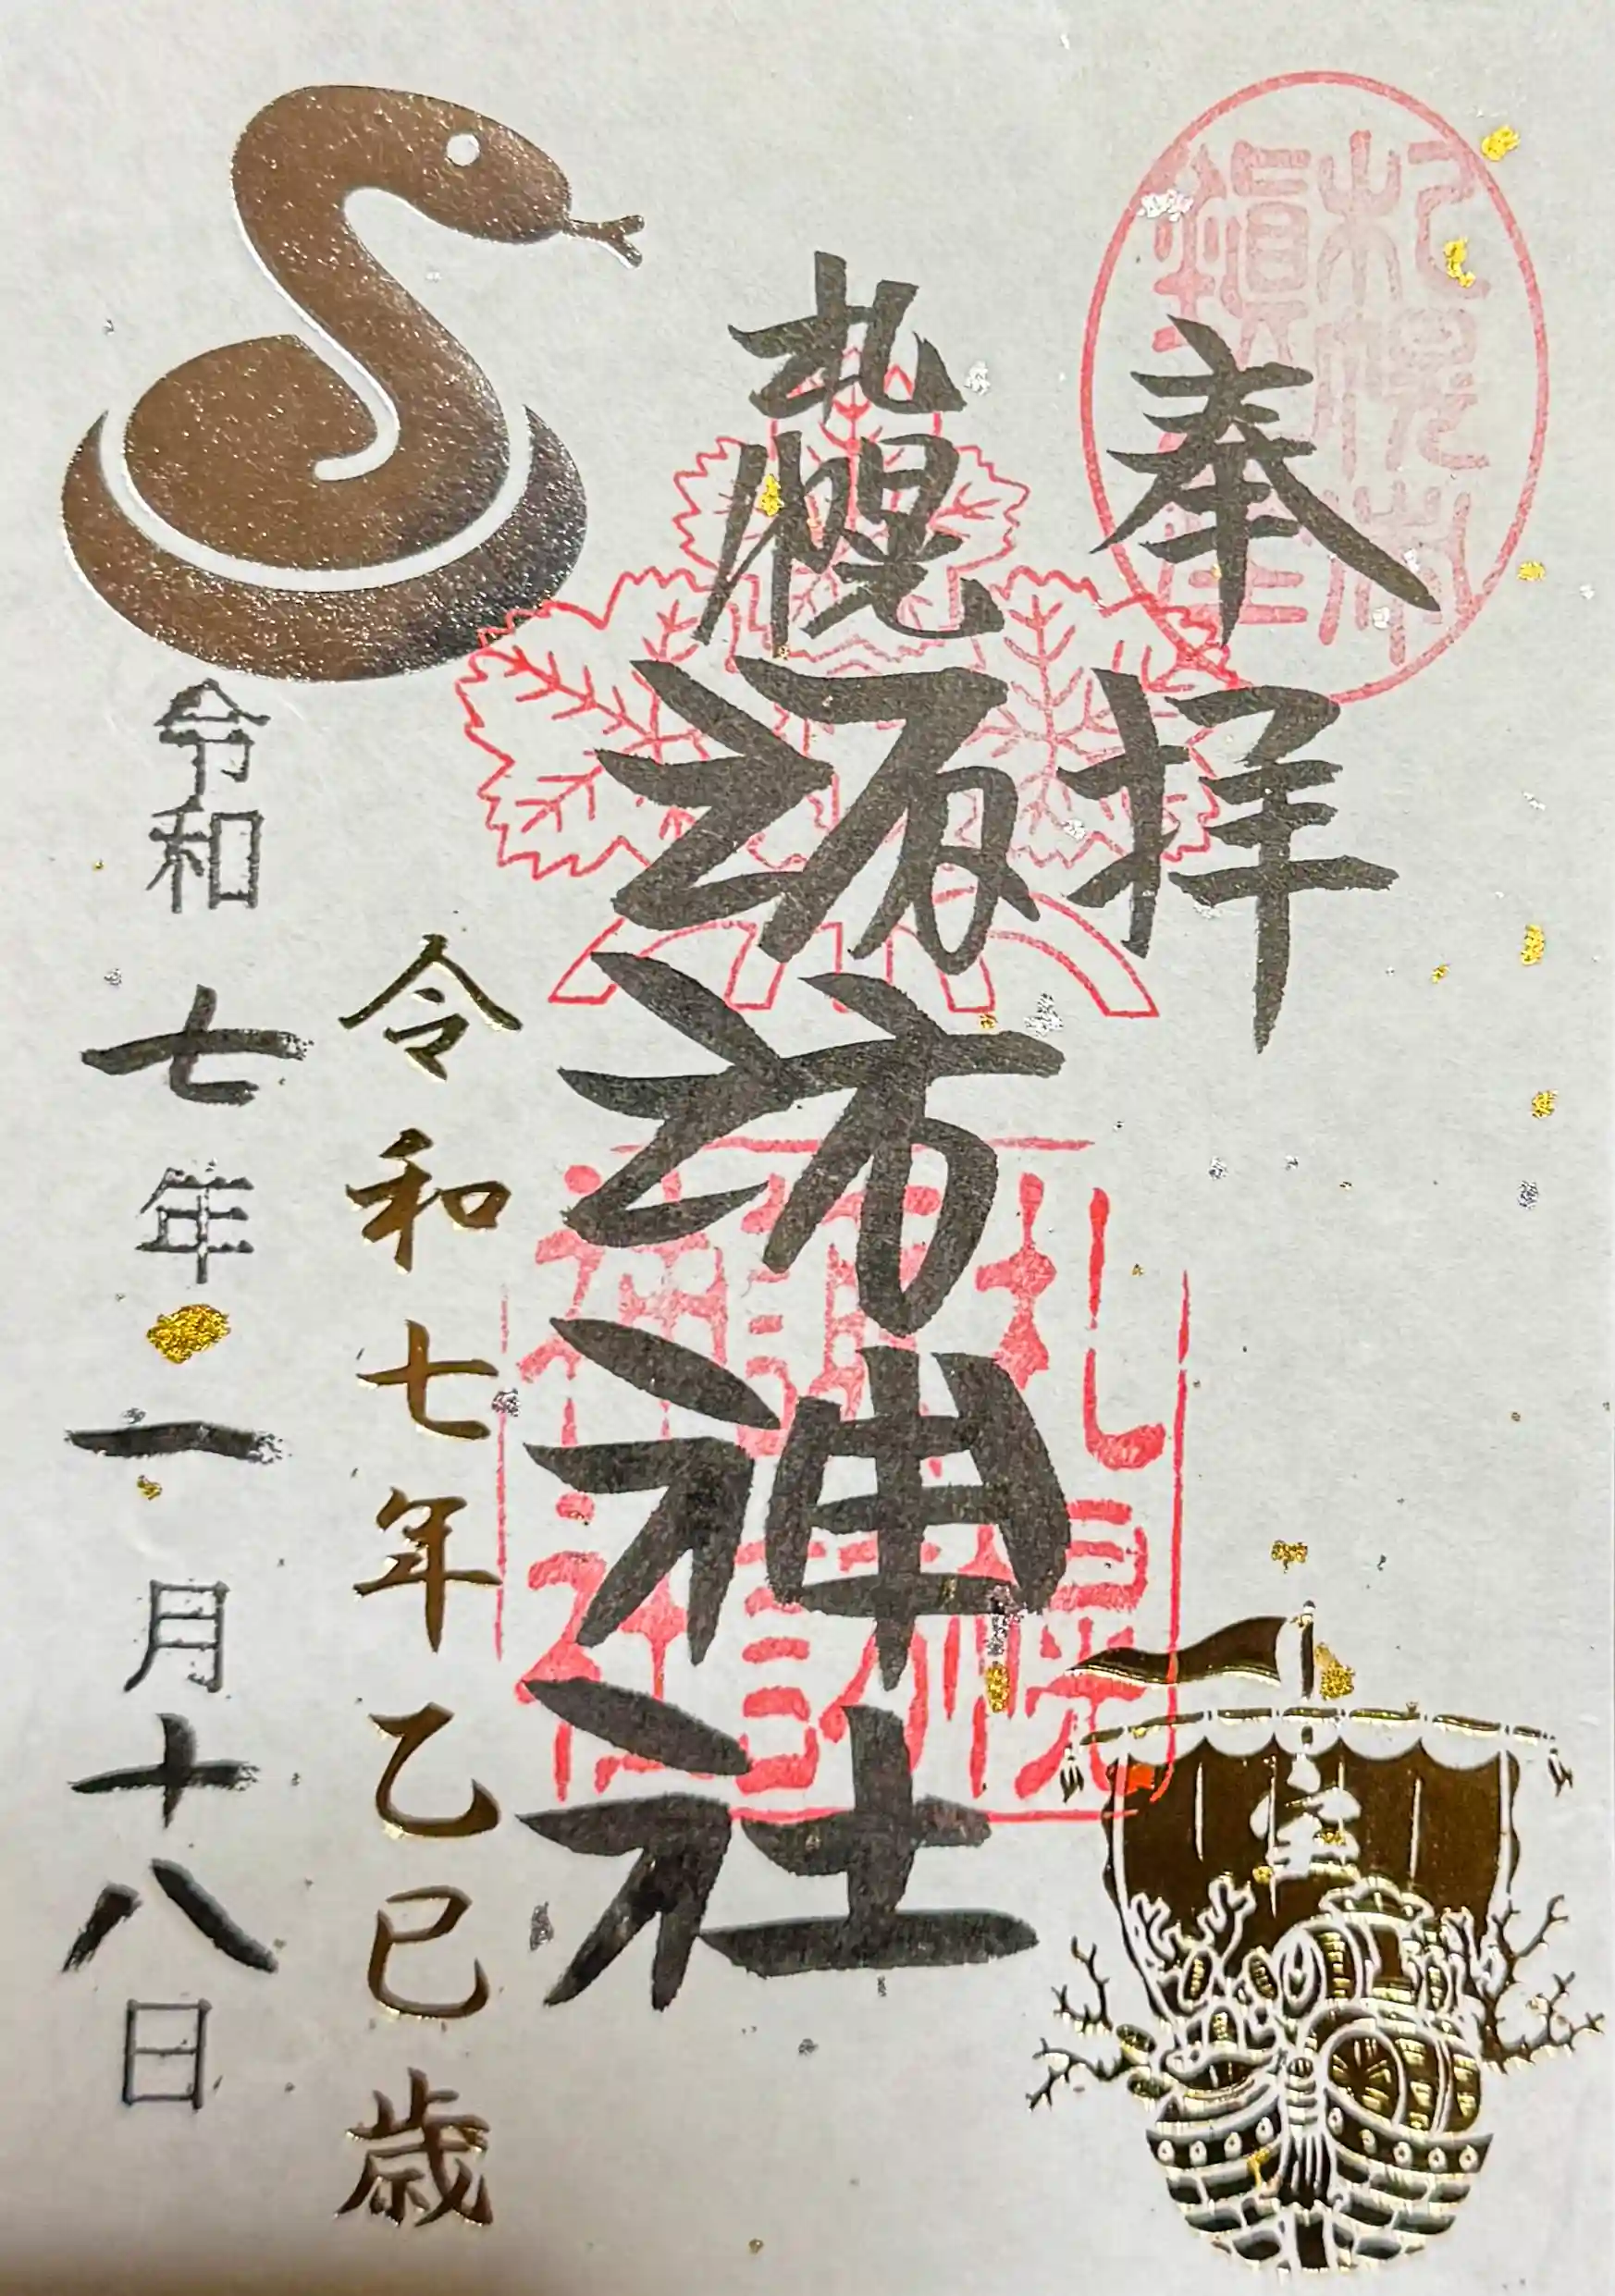 奉拝
札幌諏訪神社
令和七年乙巳歳
令和七年一月十八日
宝
札幌
諏訪
神社